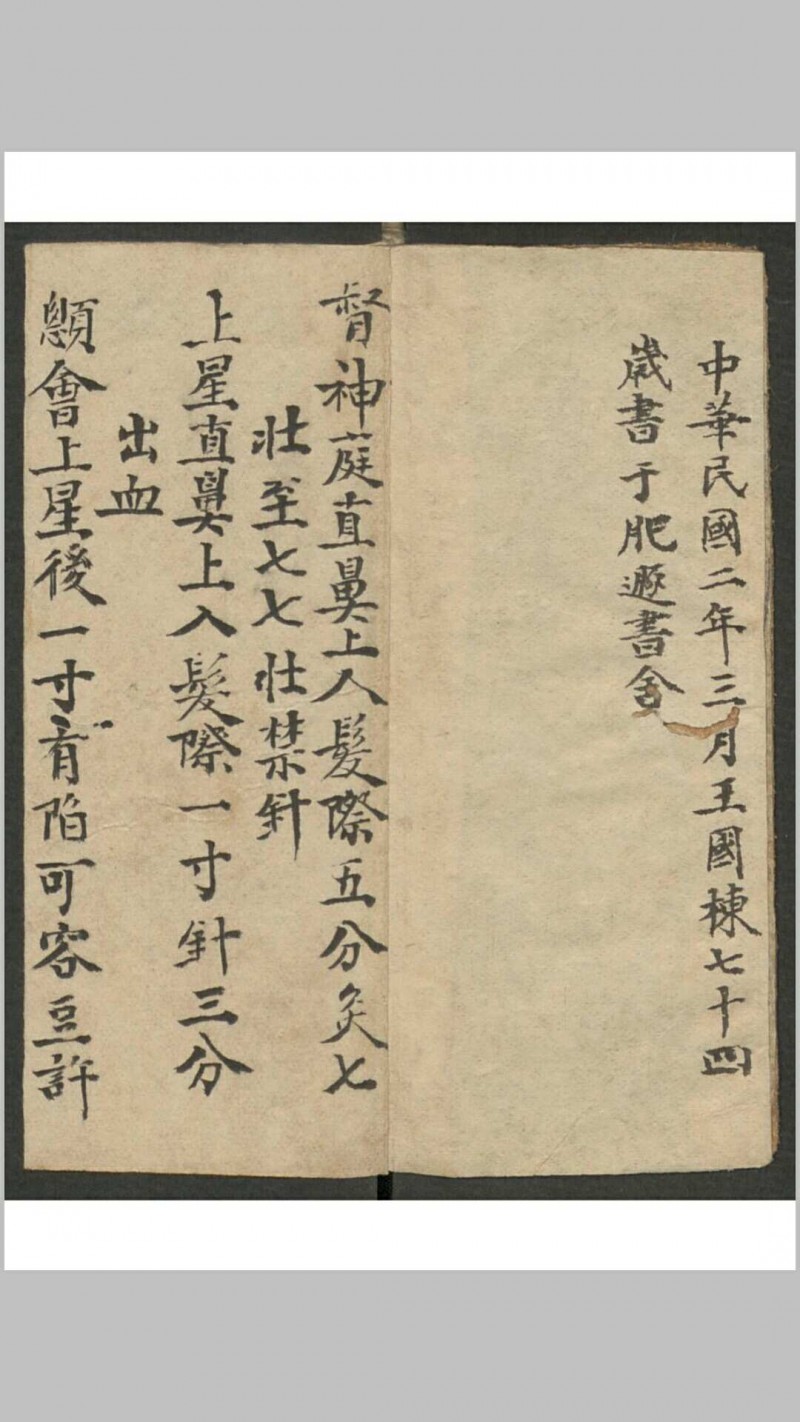 中華民國二年三月王國棟七十四
歲書于肥遯書舍
督神庭直鼻上入髮際五分灸七
壯至七七壯禁針
上星直鼻上入髮際一寸針三分
出血
顖會上星後一寸有陷可容豆許